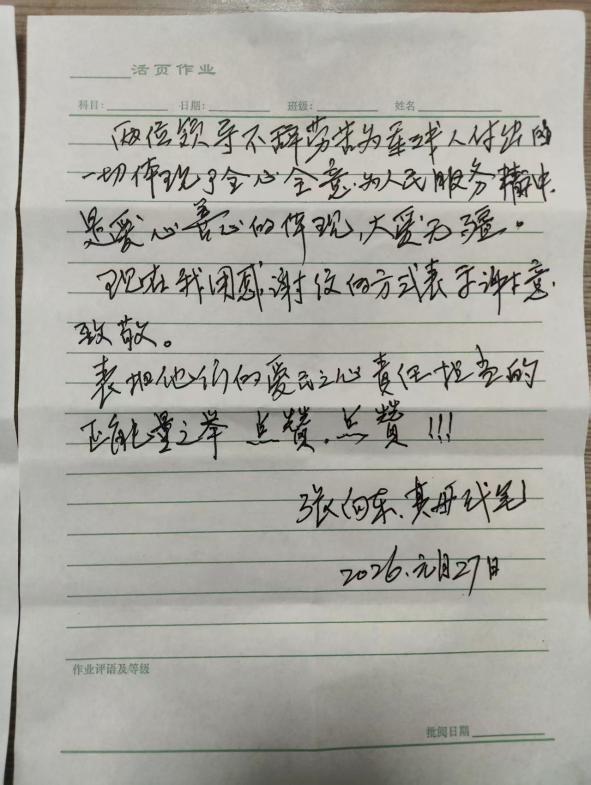 活页作业
科目: 日期: 班级: 姓名
两位领导不辞劳苦为垂球人付出的
一切体现了全心全意为人民服务精神.
是爱心善心的体现,大爱无疆。
现在我用感谢信的方式表示谢意
致敬。
表担他们的爱民之心责任担当的
正能量之举 点赞.点赞!!!
张向东.其母代笔
2026.元月27日
作业评语及等级
批阅日期